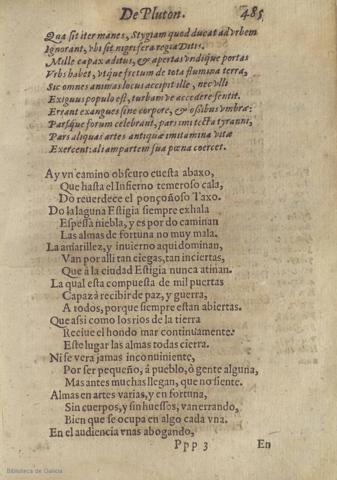 De Pluton. 485
Quà sit iter manes, Stygiam quod ducat ad vrbem
Ignorant, vbi sit nigri fera regia Ditis.
Mille capax aditus, & apertas vndique portas
Vrbs habet, vtque fretum de tota flumina terra,
Sic omnes animas locus accipit ille, nec vlli
Exiguus populo est, turbamve accedere sentit.
Errant exangues sine corpore, & ossibus vmbræ:
Parsque forum celebrant, pars imi tecta tyranni,
Pars aliquas artes antiquæ imitamina vitæ
Exercent: aliam partem sua pœna coercet.
Ay vn camino obscuro cuesta abaxo,
Que hasta el Infierno temeroso cala,
Do reuerdece el ponçoñoso Taxo.
Do la laguna Estigia siempre exhala
Espessa niebla, y es por do caminan
Las almas de fortuna no muy mala.
La amarillez, y inuierno aqui dominan,
Van por alli tan ciegas, tan inciertas,
Que à la ciudad Estigia nunca atinan.
La qual esta compuesta de mil puertas
Capaz à recibir de paz, y guerra,
A todos, porque siempre estan abiertas.
Que assi como los rios de la tierra
Reciue el hondo mar continuamente.
Este lugar las almas todas cierra.
Ni se vera jamas inconuiniente,
Por ser pequeño, à pueblo, ò gente alguna,
Mas antes muchas llegan, que no siente.
Almas en artes varias, y en fortuna,
Sin cuerpos, y sin huessos, van errando,
Bien que se ocupa en algo cada vna.
En el audiencia vnas abogando,
Ppp 3 En
Biblioteca de Galicia